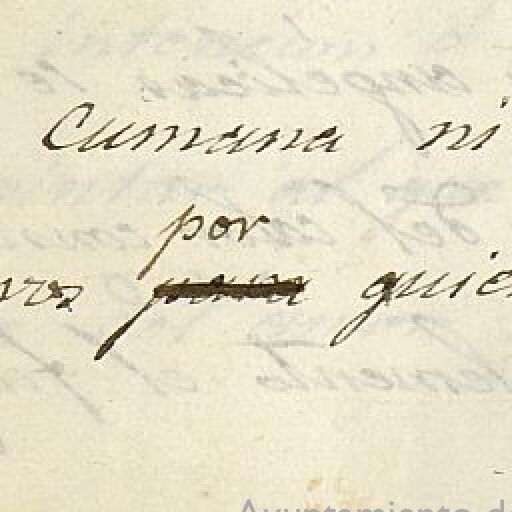 Cumana ni
por
para quie
Ayuntamiento de